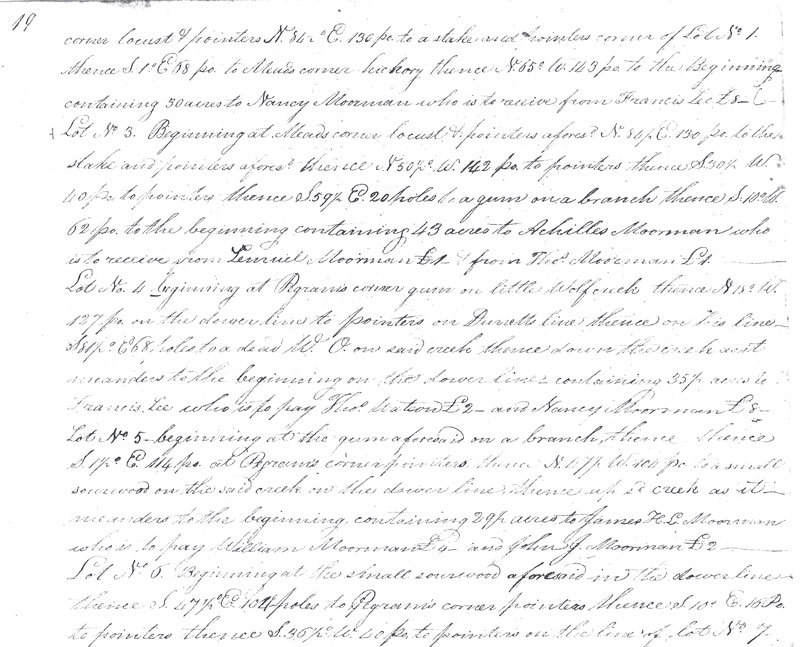 19
corner locust & pointers N. 84½° E. 130 po. to a stake and pointers corner of Lot No. 1.
thence S 1° E 68 po. to Meads corner hickory thence N. 65° W. 143 po. to the Beginning
containing 30 acres to Nancy Moorman who is to receive from Francis Lee £8-
Lot No. 3. Beginning at Meads corner locust & pointers afores.d N. 84½ E. 130 po. to the
stake and pointers afores.d thence N 50½° W. 142 po. to pointers thence S 30½ W.
40 po. to pointers thence S 59½ E. 20 poles to a gum on a branch thence S. 10° W.
62 po. to the beginning containing 43 acres to Achilles Moorman who
is to receive from Lemuel Moorman £1- & from Tho.s Moorman £4.
Lot No. 4 beginning at Pegram's corner gum on little Wolf creek thence N 18° W.
127 po. on the dower line to pointers on Durretts line thence on his line
S 81½° E 68 poles to a dead W. O. on said creek thence down the creek as it
meanders to the beginning on the dower line containing 35½ acres to
Francis Lee who is to pay Tho.s Watson £2- and Nancy Moorman £8-
Lot No. 5- beginning at the gum aforesaid on a branch, thence thence
S. 1½° E. 114 po. at Pegram's corner pointers, thence N. 47½ W. 104 po. to a small
sourwood on the said creek on the dower line, thence up s.d creek as it
meanders to the beginning, containing 29½ acres to James H. L. Moorman
who is to pay William Moorman £4- and John J. Moorman £2-
Lot No. 6. Beginning at the small sourwood aforesaid in the dower line
thence S. 47½° E. 104 poles to Pegram's corner pointers thence S 10° E. 16 Po.
to pointers thence S. 36½° W. 40 po. to pointers on the line of lot No. 7.